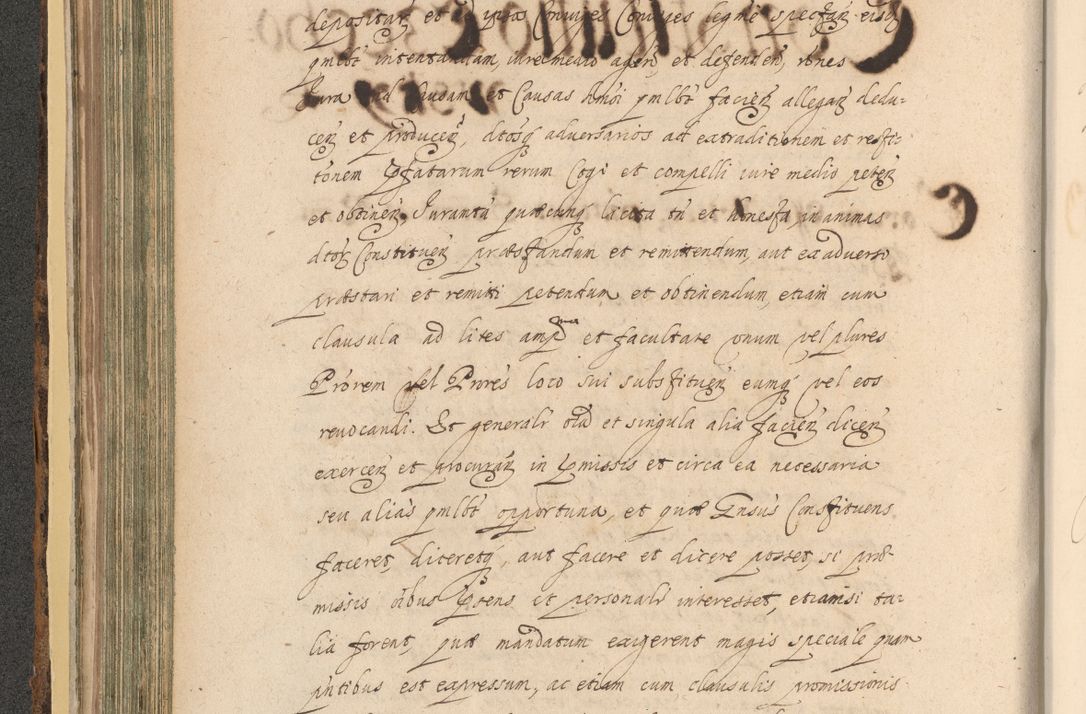 depositar et ad ipsos Conuges Conuges legme spectan eisq
pmlbt intentandam, iure medio agen, et defenden, rones
Jura ad Causam et Causas hmoi pmlbt facien allegan dedu-
cen et producen, dtosq adversarios ad extraditionem et restit-
tonem pfatarum rerum Cogi et compelli iure medio peten
et obtinen, Jurantu quæcunq licita tn et honesta, in animas
dtor Constituen præstandum et remittendum, aut ex adverso
præstari et remitti petendum et obtinendum, etiam cum
clausula ad lites ampma et facultate unum vel plures
Prorem vel Prores loco sui substituen eumq vel eos
revocandi. Et generalr oia et singula alia facien dicen
exercen et procuran in pmissis et circa ea necessaria
seu alias pmlbt opportuna, et quæ Ensus Constituens
faceret, diceretq, aut facere et dicere posset, si præ-
missis oibus psens et personalr interesset, etiamsi ta-
lia forent, quæ mandatum exigerent magis speciale quam
pntibus est expressum, ac etiam cum clausulis promissionis